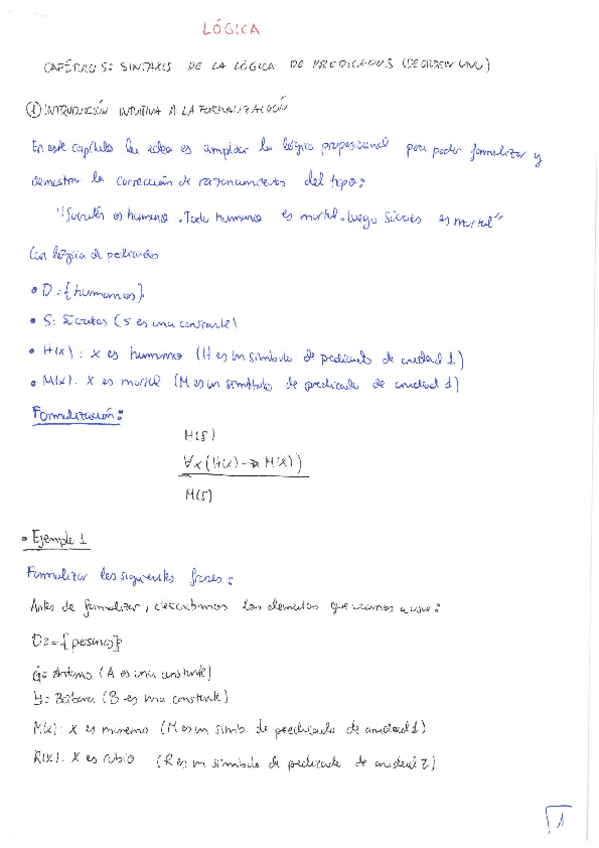 LÓGICA
CAPÍTULO 5: SINTAXIS DE LA LÓGICA DE PREDICADOS (DE ORDEN UNO)
① INTRODUCCIÓN INTUITIVA A LA FORMALIZACIÓN
En este capítulo la idea es ampliar la lógica proposicional para poder formalizar y
demostrar la corrección de razonamientos del tipo:
"Sócrates es humano. Todo humano es mortal. Luego Sócrates es mortal"
Con lógica de predicados
• D: {humanos}
• S: Sócrates (S es una constante)
• H(x): x es humano (H es un símbolo de predicado de aridad 1)
• M(x): x es mortal (M es un símbolo de predicado de aridad 1)
Formalización:
H(S)
∀x (H(x) → M(x))
M(S)
• Ejemplo 1
Formalizar las siguientes frases:
Antes de formalizar, describimos los elementos que vamos a usar:
D: = {personas}
a: Antonio (A es una constante)
b: Bárbara (B es una constante)
M(x): x es moreno (M es un simb. de predicado de aridad 1)
R(x): x es rubio (R es un símbolo de predicado de aridad 2)
1